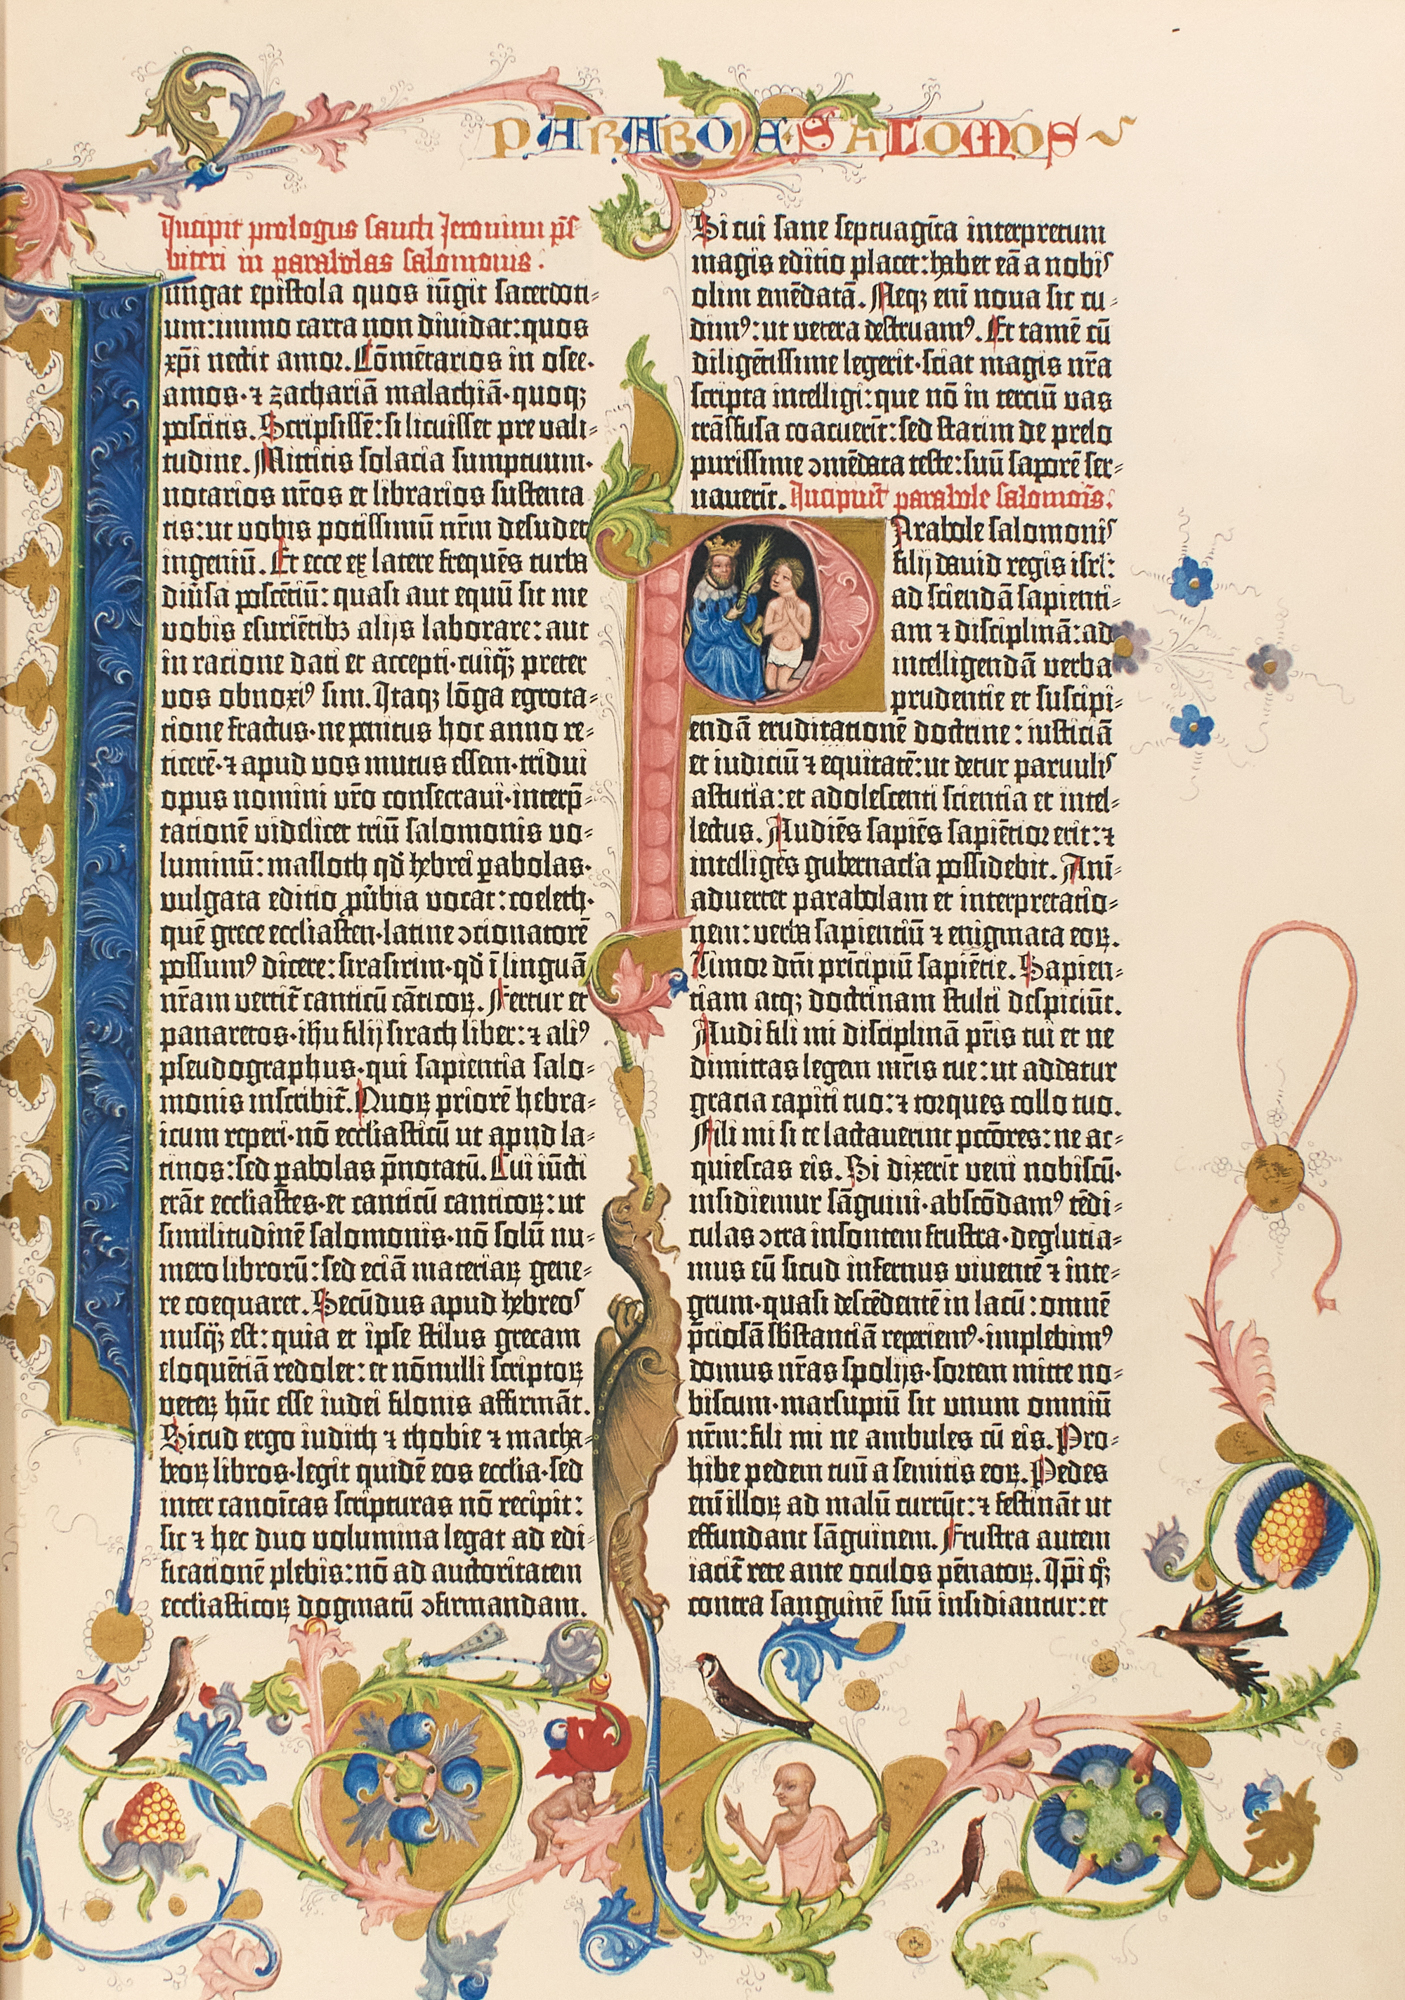 PARABOLAE SALOMOIS
Incipit prologus sancti Jeronimi p̄s-
biteri in parabolas salomonis.
Iungat epistola quos iūgit sacerdoti-
um: immo carta non diuidat: quos
xp̄i nectit amor. Cōmētarios in osee.
amos. ⁊ zachariā malachiā. quoqꝫ
poscitis. Scripsissē: si licuisset pre vali-
tudine. Mittitis solacia sumptuum.
notarios nr̄os et librarios sustenta-
tis: ut vobis potissimū nr̄m desudet
ingeniū. Et ecce ex latere frequēs turba
diūsa poscētiū: quasi aut equū sit me
vobis esuriētibꝫ alijs laborare: aut
in racione dati et accepti. cuiqꝫ preter
vos obnoxiꝰ sim. Itaqꝫ lōga egrota-
tione fractus. ne penitus hoc anno re-
ticerē. ⁊ apud vos mutus essem. tridui
opus nomini vr̄o consecraui. interp̄-
tationē videlicet triū salomonis vo-
luminū: masloth qđ hebrei ꝑabolas.
vulgata editio ꝓūbia vocat: coeleth.
quē grece eccl̄iasten. latine ꝯcionatorē
possumꝰ dicere: sirasirim. qđ ī linguā
nr̄am vertit̄ canticū cāticoꝝ. Fertur et
panaretos. ih̄u filij sirach liber: ⁊ aliꝰ
pseudographus. qui sapientia salo-
monis inscribit̄. Quoꝝ priorē hebra-
icum reperi. nō eccl̄iasticū ut apud la-
tinos: sed ꝑabolas p̄notatū. Cui iūcti
erāt eccl̄iastes. et canticū canticoꝝ: ut
similitudinē salomonis. nō solū nu-
mero librorū: sed eciā materiaꝝ gene-
re coequaret. Secūdus apud hebreos
nusqꝫ est: quia et ipse stilus grecam
eloquētiā redolet: et nōnulli scriptoꝝ
veteꝝ hūc esse iudei filonis affirmāt.
Sicud ergo iudith ⁊ thobie ⁊ macha-
beoꝝ libros. legit quidē eos eccl̄ia. sed
inter canoīcas scripturas nō recipit:
sic ⁊ hec duo volumina legat ad edi-
ficationē plebis: nō ad auctoritatem
eccl̄iasticoꝝ dogmatū ꝯfirmandam.
Si cui sane septuagīta interpretum
magis editio placet: habet eā a nobis
olim emēdatā. Neqꝫ enī noua sic cu-
dimꝰ: ut vetera destruamꝰ. Et tamē cū
diligētissime legerit. sciat magis nr̄a
scripta intelligi: que nō in terciū vas
trāsfusa coacuerīt: sed statim de prelo
purissime ꝯmēdata teste: suū saporē ser-
uauerīt. Incipiūt parabole salomōis.
Parabole salomonis
filij dauid regis isrl̄:
ad sciendā sapienti-
am ⁊ disciplinā: ad
intelligendā verba
prudentie et suscipi-
endā eruditationē doctrine: iusticiā
et iudiciū ⁊ equitatē: ut detur paruulis
astutia: et adolescenti scientia et intel-
lectus. Audiēs sapiēs sapiētior erit: ⁊
intelligēs gubernacl̄a possidebit. Anī-
aduertet parabolam et interpretatio-
nem: verba sapientiū ⁊ enigmata eoꝝ.
Timor dn̄i prīcipiū sapiētie. Sapien-
tiam atqꝫ doctrinam stulti despiciūt.
Audi fili mi disciplinā pr̄is tui et ne
dimittas legem mr̄is tue: ut addatur
gracia capiti tuo: ⁊ torques collo tuo.
Fili mi si te lactauerint pctōres: ne ac-
quiescas eis. Si dixerīt veni nobiscū.
insidiemur sāguini. abscōdamꝰ tēdi-
culas ꝯtra insontem frustra. deglutia-
mus eū sicud infernus viuentē ⁊ īnte-
grum. quasi descēdentē in lacū: omnē
p̄ciosā sb̄stantiā reperiemꝰ. implebimꝰ
domus nr̄as spolijs. sortem mitte no-
biscum. marsupiū sit unum omniū
nr̄m: fili mi ne ambules cū eis. Pro-
hibe pedem tuū a semitis eoꝝ. Pedes
enī illoꝝ ad malū currūt: ⁊ festināt ut
effundant sāguinem. Frustra autem
iacit̄ rete ante oculos pēnatoꝝ. Ip̄i qꝫ
contra sanguinē suū īnsidiantur: et